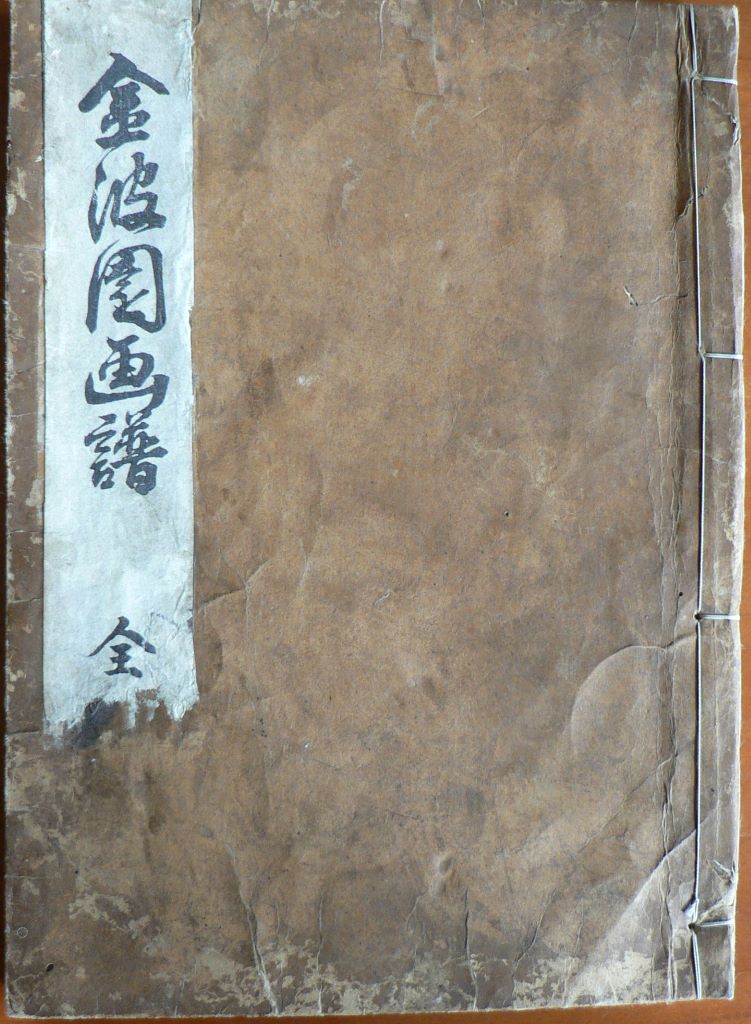 金波園画譜
全